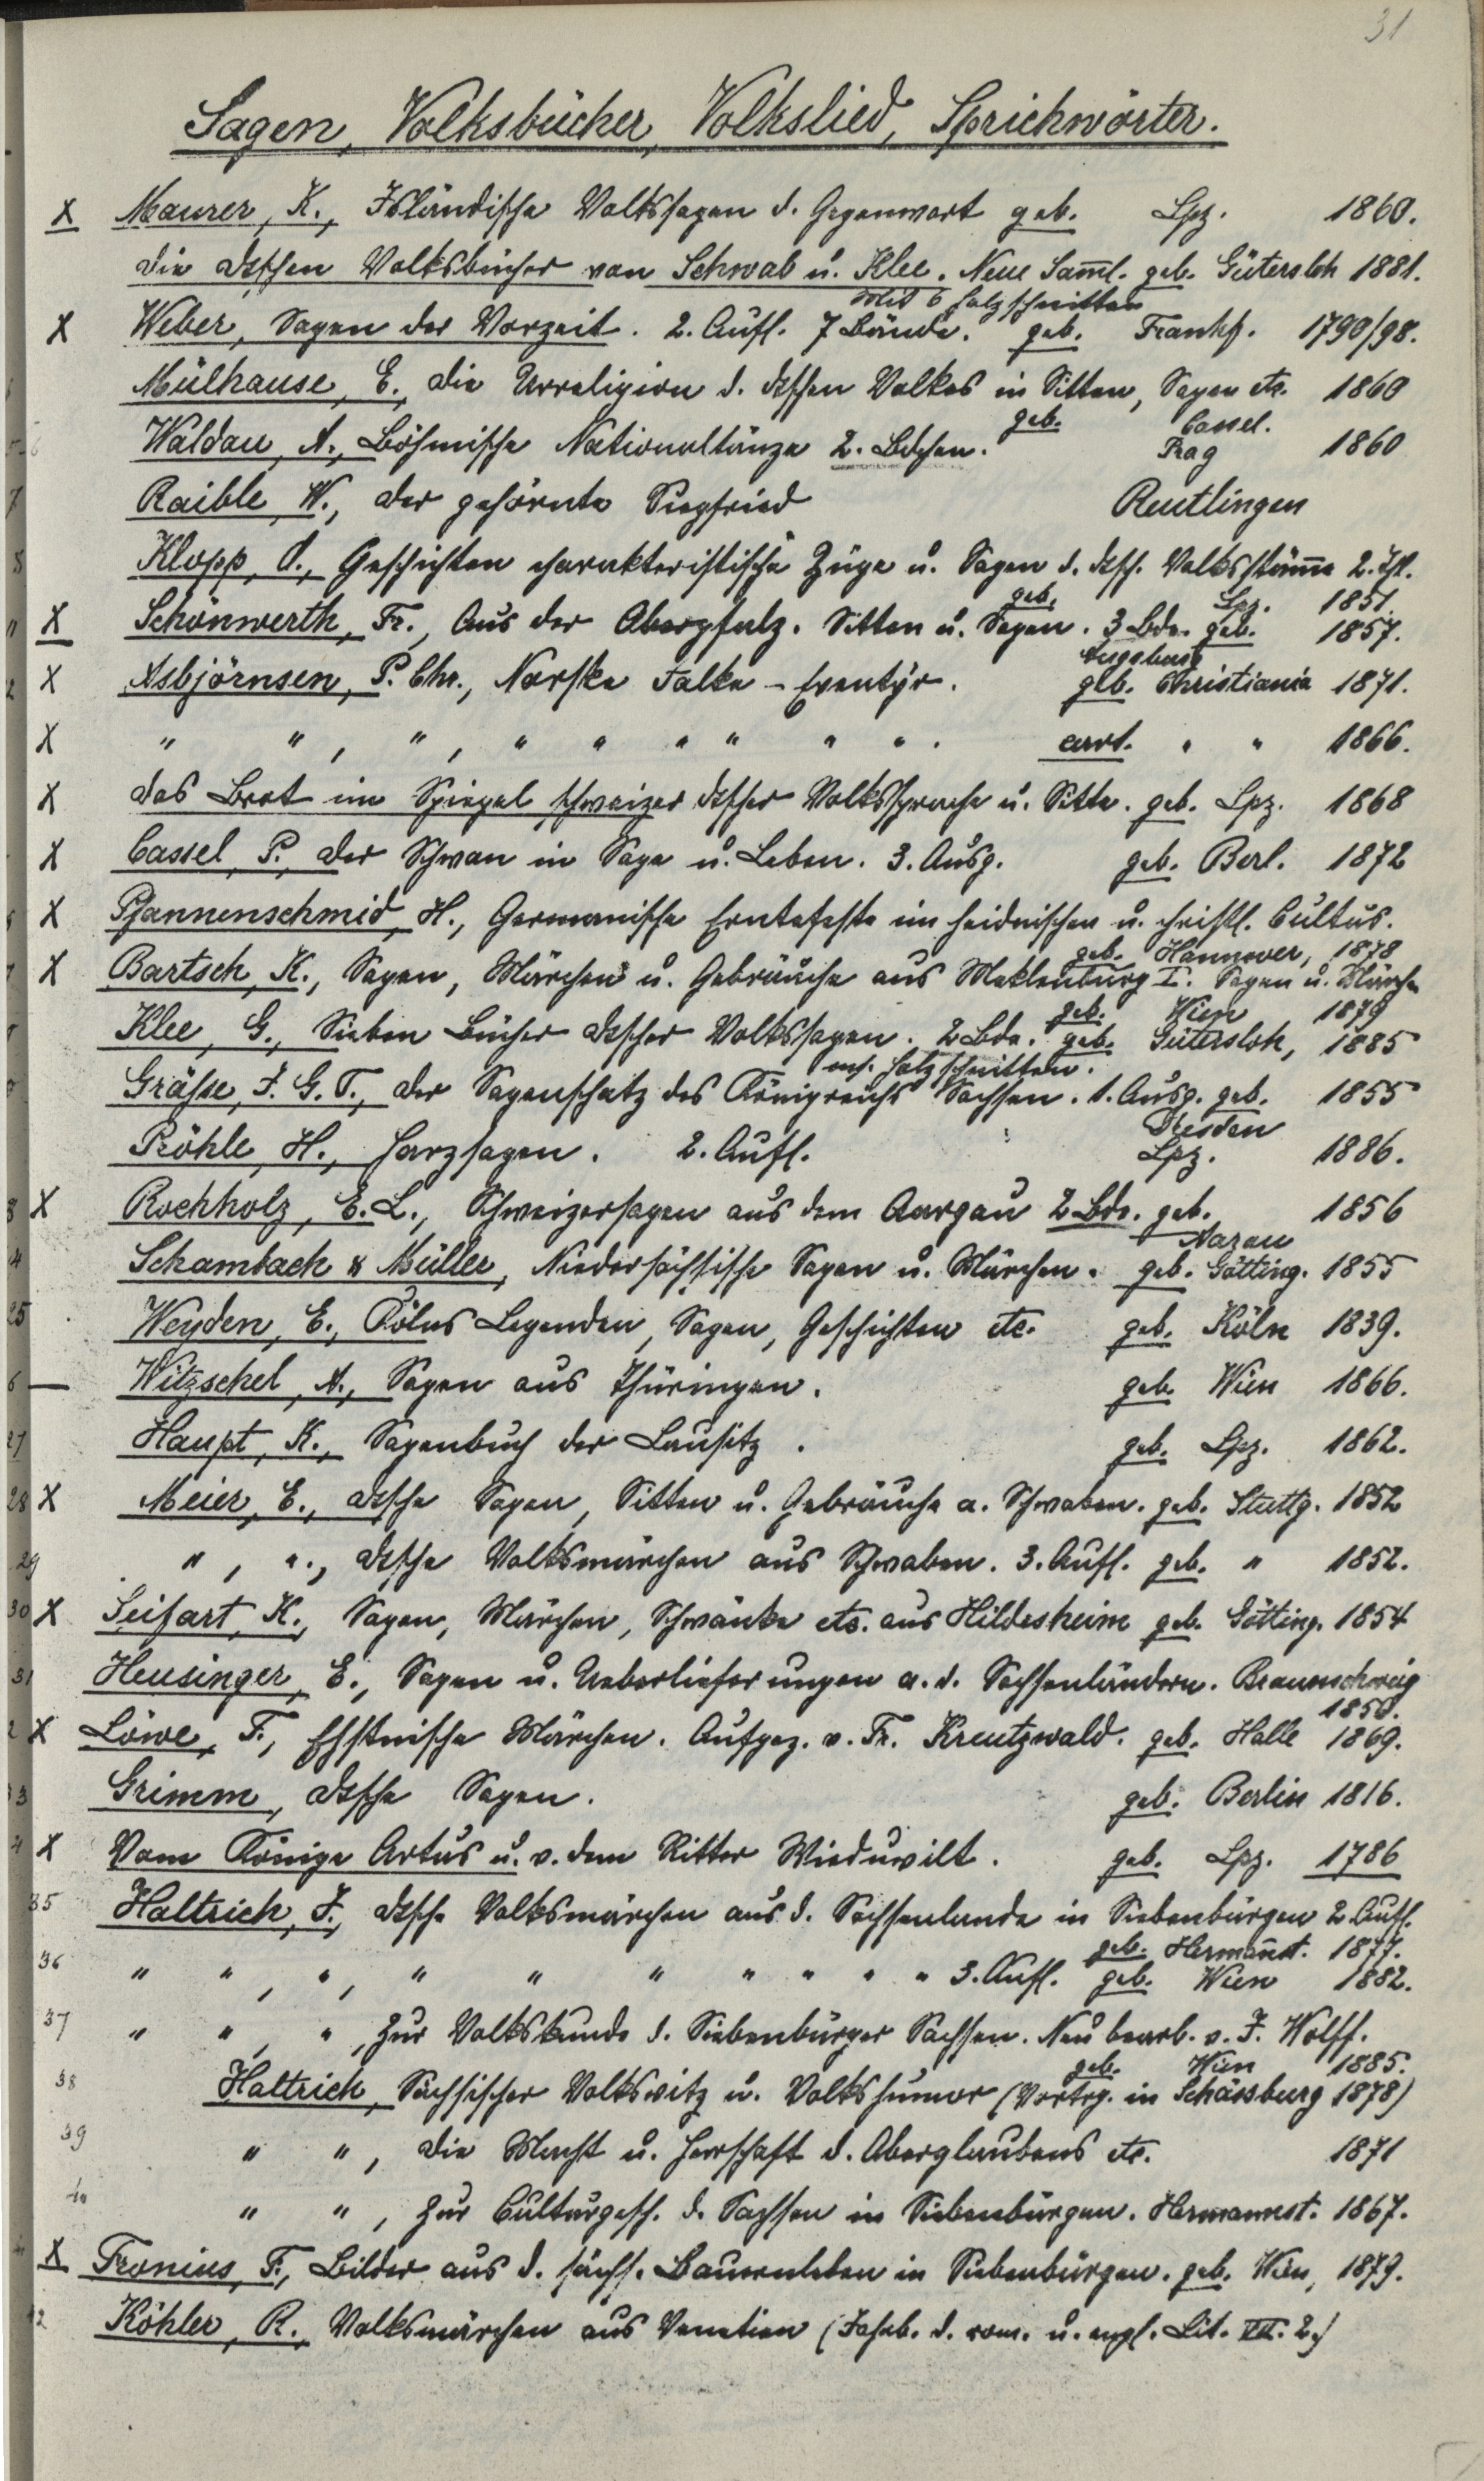 31
Sagen, Volksbücher, Volkslied, Sprichwörter.
X Maurer, K., Isländische Volkssagen d. Gegenwart geb. Lpz. 1860.
Die dtschen Volksbücher von Schwab u. Klee. Neue Samml. geb. Gütersloh 1881.
Mit 6 Holzschnitten
X Weber, Sagen der Vorzeit. 2. Aufl. 7 Bände. geb. Frankf. 1790/98.
Mülhause, E., Die Urreligion d. dtschen Volkes in Sitten, Sagen etc. 1860
geb. Cassel.
Waldau, A., Böhmische Nationaltänze 2. Bdchen. Prag 1860
7 Raible, W., Der gehörnte Siegfried Reutlingen
8 Klopp, O., Geschichten charakteristische Züge u. Sagen d. dtsch. Volksstäm̄e 2. Thl.
geb. Lpz. 1851.
11 X Schönwerth, Fr., Aus der Oberpfalz. Sitten u. Sagen. 3 Bde. geb. 1857.
Augsburg
2 X Asbjörnsen, P. Chr., Norske Folke-Eventyr. geb. Christiania 1871.
X " ", ", " " " " " ". cart. " " 1866.
X Das Brot im Spiegel schweizer dtscher Volkssprache u. Sitte. geb. Lpz. 1868
X Cassel, P., Der Schwan in Sage u. Leben. 3. Ausg. geb. Berl. 1872
X Pfannenschmid, H., Germanische Erntefeste im heidnischen u. christl. Cultus.
geb. Hannover, 1878
X Bartsch, K., Sagen, Märchen u. Gebräuche aus Meklenburg I. Sagen u. Märchen
geb. Wien 1879
Klee, G., Sieben Bücher dtscher Volkssagen. 2 Bde. geb. Gütersloh, 1885
m. Holzschnitten.
Gräße, J. G. T., Der Sagenschatz des Königreichs Sachsen. 1. Ausg. geb. 1855
Dresden
Pröhle, H., Harzsagen. 2. Aufl. Lpz. 1886.
3 X Rochholz, E. L., Schweizersagen aus dem Aargau 2 Bde. geb. 1856
Aarau
4 Schambach & Müller, Niedersächsische Sagen u. Märchen. geb. Götting. 1855
25 Weyden, E., Cölns Legenden, Sagen, Geschichten etc. geb. Köln 1839.
6 — Witzschel, A., Sagen aus Thüringen. geb. Wien 1866.
27 Haupt, K., Sagenbuch der Lausitz. geb. Lpz. 1862.
28 X Meier, E., dtsche Sagen, Sitten u. Gebräuche a. Schwaben. geb. Stuttg. 1852
29 ", "., dtsche Volksmärchen aus Schwaben. 3. Aufl. geb. " 1852.
30 X Seifart, K., Sagen, Märchen, Schwänke etc. aus Hildesheim geb. Götting. 1854
31 Heusinger, E., Sagen u. Ueberlieferungen a. d. Sachsenländern. Braunschweig
1850.
2 X Löwe, F., Ehstnische Märchen. Aufgez. v. Fr. Kreutzwald. geb. Halle 1869.
33 Grimm, dtsche Sagen. geb. Berlin 1816.
4 X Vom Könige Artus u. v. dem Ritter Wieduwilt. geb. Lpz. 1786
35 Haltrich, J., dtsche Volksmärchen aus d. Sachsenlande in Siebenbürgen 2. Aufl.
geb. Herman̄st. 1877.
36 " ", ", " " " " " " " 3. Aufl. geb. Wien 1882.
37 " ", ", Zur Volkskunde d. Siebenbürger Sachsen. Neu bearb. v. J. Wolff.
geb. Wien 1885.
38 Haltrich, Sächsischer Volkswitz u. Volkshumor (Vortrg. in Schässburg 1878)
39 " ", Die Macht u. Herrschaft d. Aberglaubens etc. 1871
40 " ", Zur Culturgesch. d. Sachsen in Siebenbürgen. Hermannst. 1867.
X Fronius, F., Bilder aus d. sächs. Bauernleben in Siebenbürgen. geb. Wien, 1879.
42 Köhler, R., Volksmärchen aus Venetien (Jahrb. d. rom. u. engl. Lit. VII. 2.)